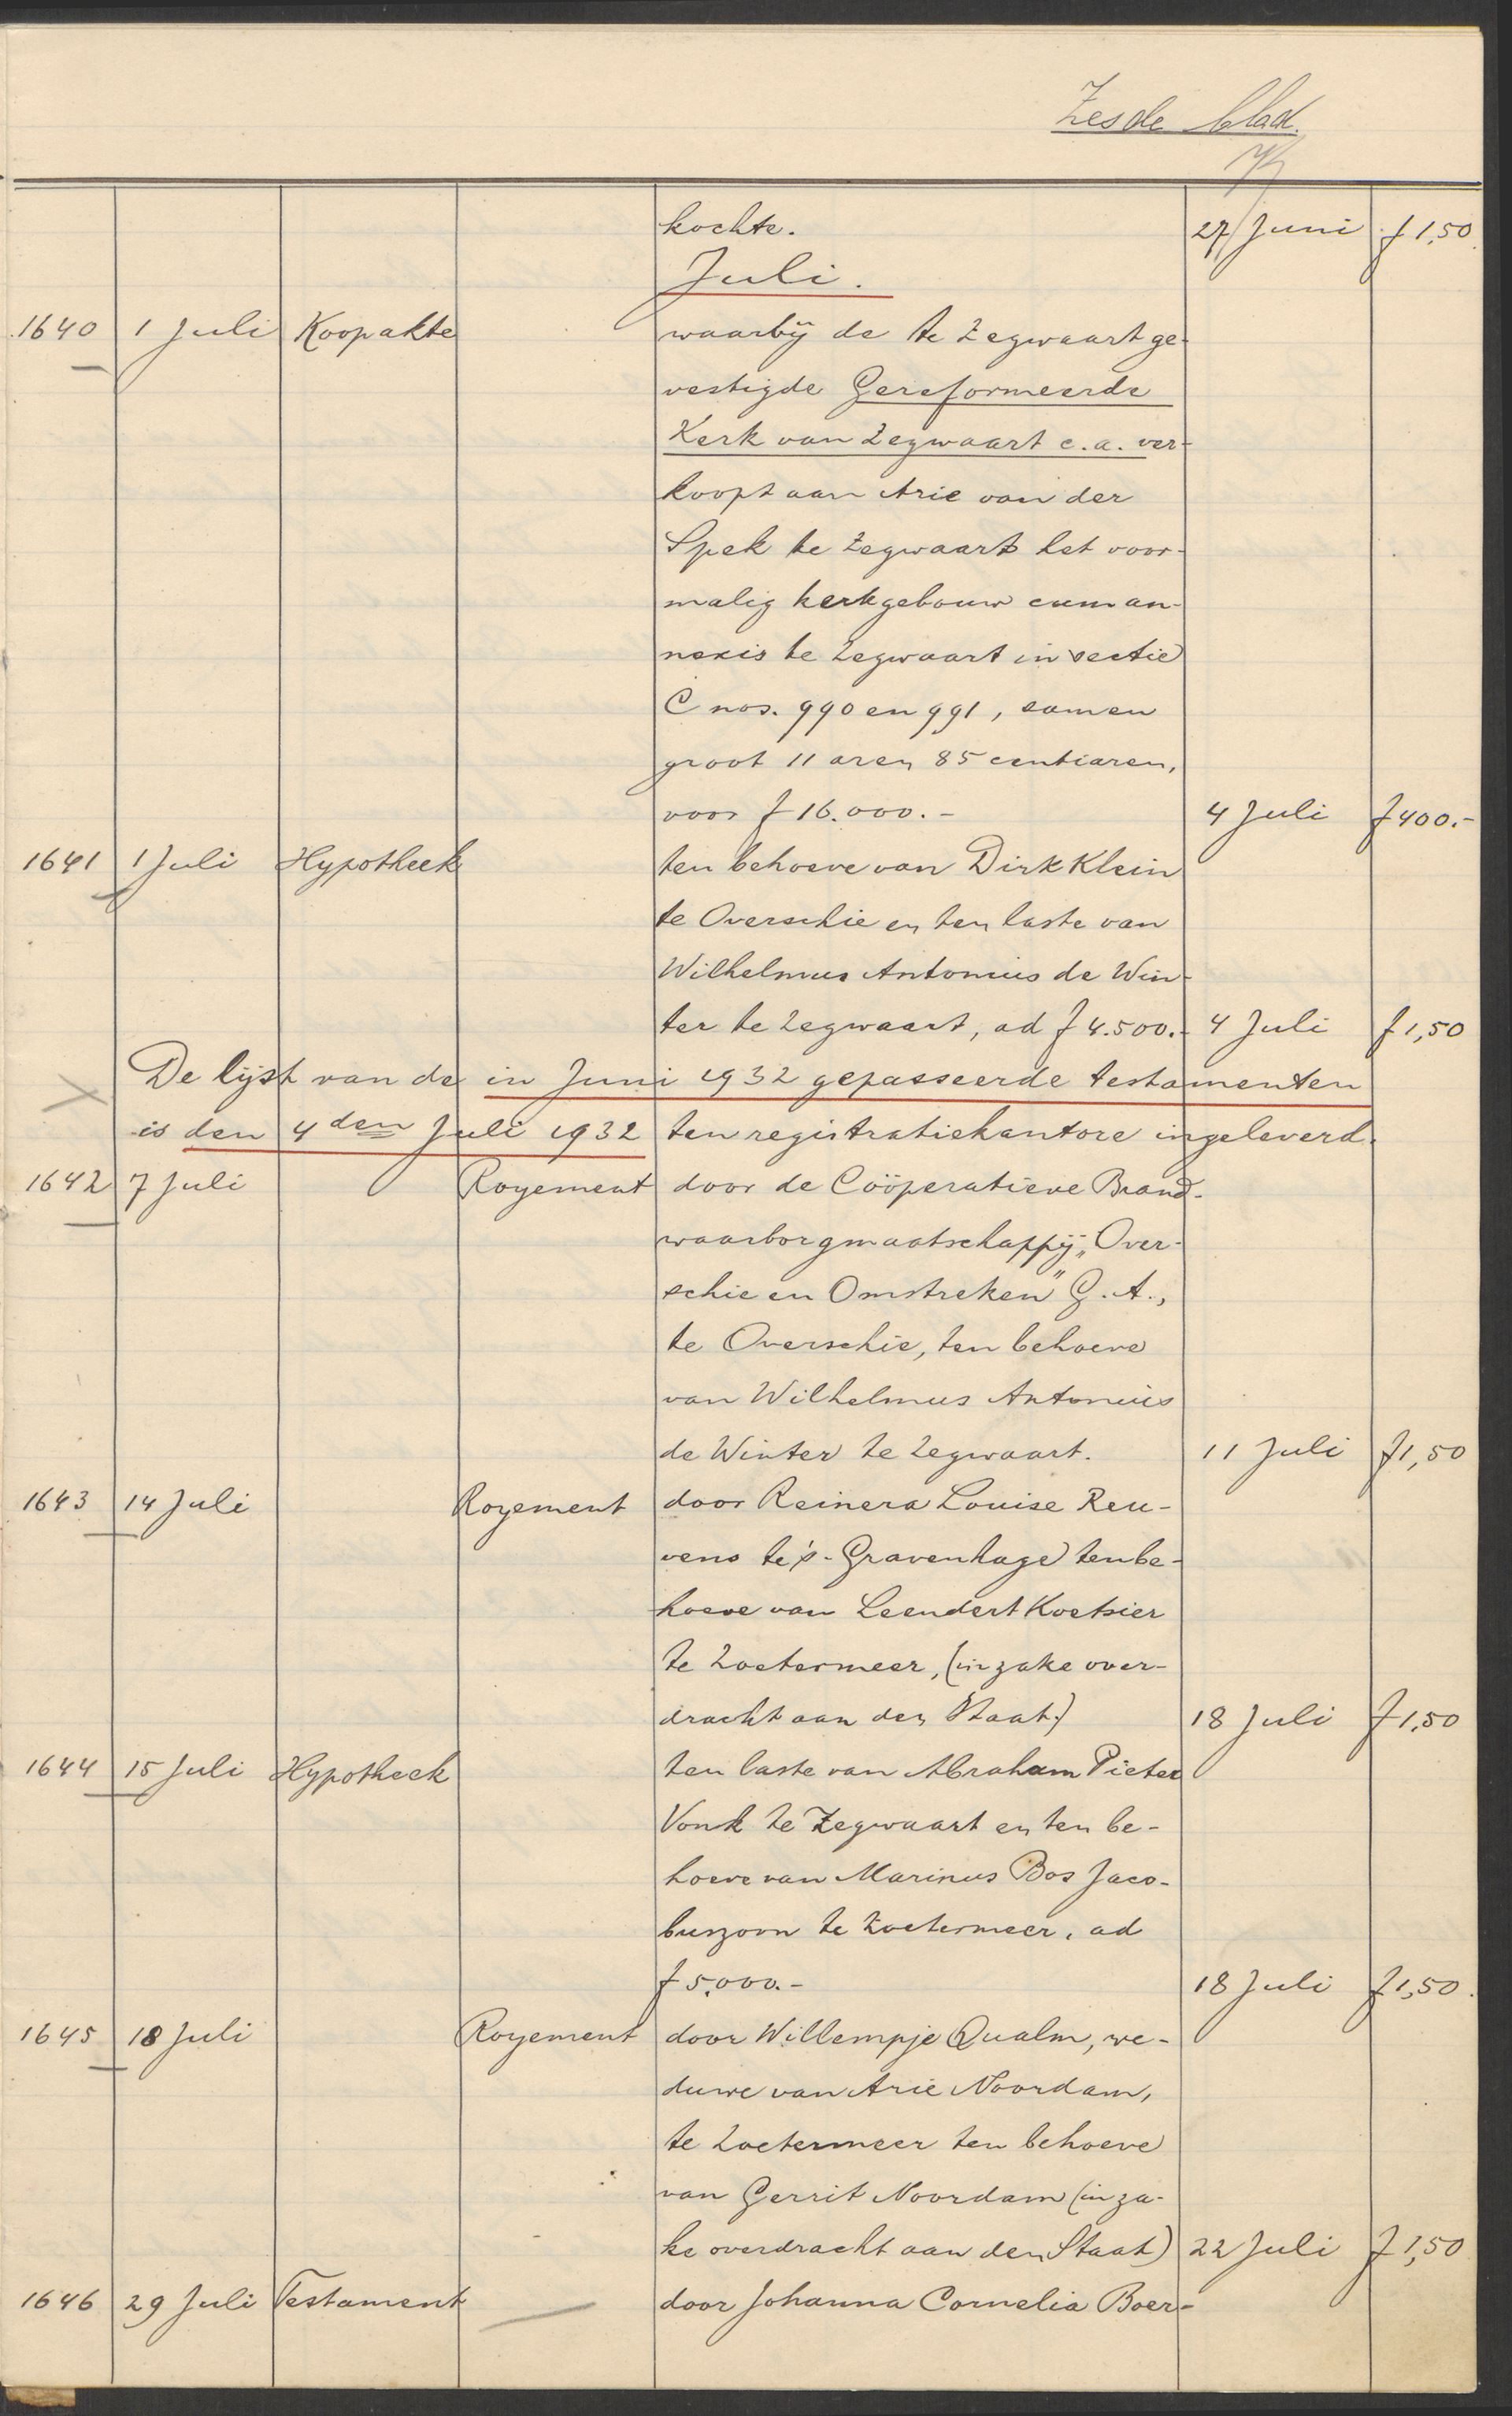 Zesde blad.
kochte. 27 Juni f 1,50
Juli.
1640 1 Juli Koopakte waarbij de te Zegwaart ge-
vestigde Gereformeerde
Kerk van Zegwaart c.a. ver-
koopt aan Arie van der
Spek te Zegwaart het voor-
malig kerkgebouw cum an-
nexis te Zegwaart in sectie
C nos. 990 en 991, samen
groot 11 aren 85 centiaren,
voor f 16.000.- 4 Juli f 400.-
1641 1 Juli Hypotheek ten behoeve van Dirk Klein
te Overschie en ten laste van
Wilhelmus Antonius de Win-
ter te Zegwaart, ad f 4.500.- 4 Juli f 1,50
De lijst van de in Juni 1932 gepasseerde testamenten
is den 4den Juli 1932 ten registratiekantore ingeleverd.
1642 7 Juli Royement door de Coöperatieve Brand-
waarborgmaatschappij „Over-
schie en Omstreken" G.A.,
te Overschie, ten behoeve
van Wilhelmus Antonius
de Winter te Zegwaart. 11 Juli f 1,50
1643 14 Juli Royement door Reinera Louise Reu-
vens te 's-Gravenhage ten be-
hoeve van Leendert Koetsier
te Zoetermeer, (inzake over-
dracht aan den Staat.) 18 Juli f 1,50
1644 15 Juli Hypotheek ten laste van Abraham Pieter
Vonk te Zegwaart en ten be-
hoeve van Marinus Bos Jaco-
buszoon te Zoetermeer, ad
f 5.000.- 18 Juli f 1,50.
1645 18 Juli Royement door Willempje Qualm, we-
duwe van Arie Noordam,
te Zoetermeer ten behoeve
van Gerrit Noordam (inza-
ke overdracht aan den Staat) 22 Juli f 1,50
1646 29 Juli Testament door Johanna Cornelia Boer-